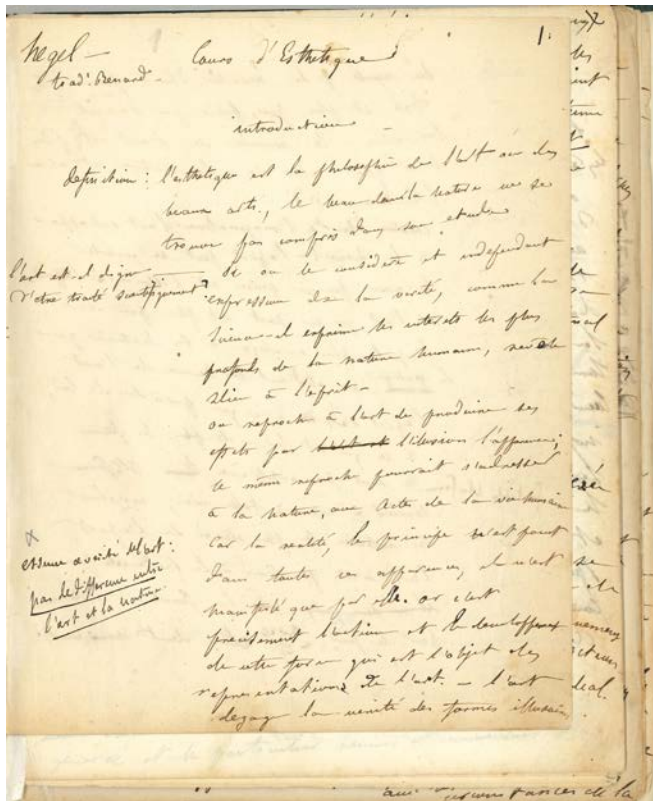 hegel —
trad. Benard —
Cours d'Esthetique
1.
introduction —
definition : l'esthetique est la philosophie de l'art ou des
beaux arts, le beau dans la nature ne se
trouve pas compris dans son etude
l'art est-il digne
d'etre traité scientifiquement ?
Si on le considere et independant
expression de la verité, comme la
science — il exprime les interets les plus
profonds de la nature humaine, revele
Dieu à l'esprit —
on reproche à l'art de produire ses
effets par l'illusion l'apparence ;
le même reproche pourrait s'adresser
à la nature, aux actes de la vie humaine
car la realité, le principe
dans toutes ces apparences, il n'est
manifesté que par elle. or c'est
precisement l'action et le developpement
de cette force qui est l'objet des
representations de l'art. — l'art
degage la verité des formes illusoires
x
essence de l'art :
pas de difference entre
l'art et la nature
circonstances de la